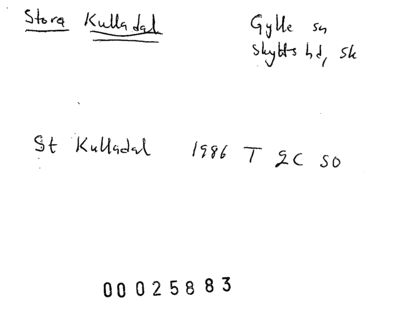 Stora Kulladal
Gylle sn
Skytts hd, Sk
St Kulladal 1986 T 2C SO
00025883